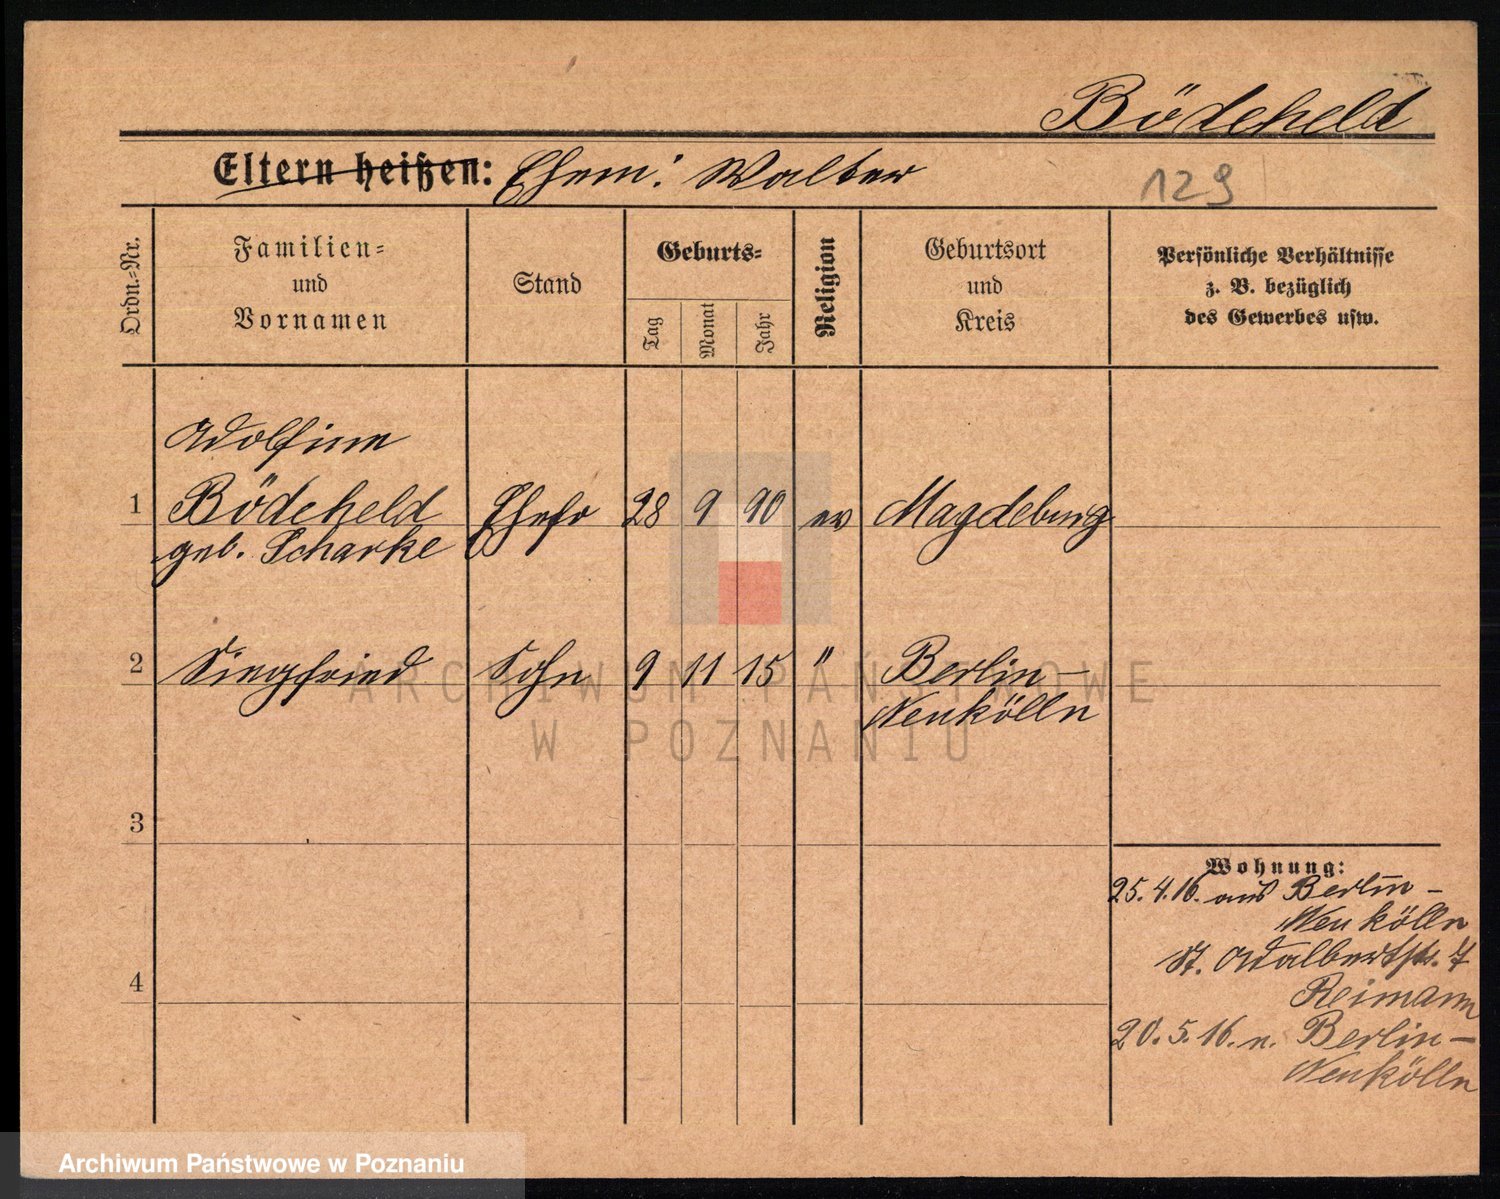 Bödeheld
Eltern heißen: Ehem: Walter
129
Ordn.-Nr.
Familien-
und
Vornamen
Stand
Geburts-
Tag
Monat
Jahr
Religion
Geburtsort
und
Kreis
Persönliche Verhältnisse
z. B. bezüglich
des Gewerbes usw.
Adolfine
1 Bödeheld Ehefr 28 9 90 ev Magdeburg
geb. Scharke
2 Siegfried Sohn 9 11 15 " Berlin-
Neukölln
3
4
Wohnung:
25.4.16. aus Berlin-
Neukölln
St. Adalbertstr. 7
Reimann
20.5.16. n. Berlin-
Neukölln
ARCHIWUM PAŃSTWOWE
W POZNANIU
Archiwum Państwowe w Poznaniu